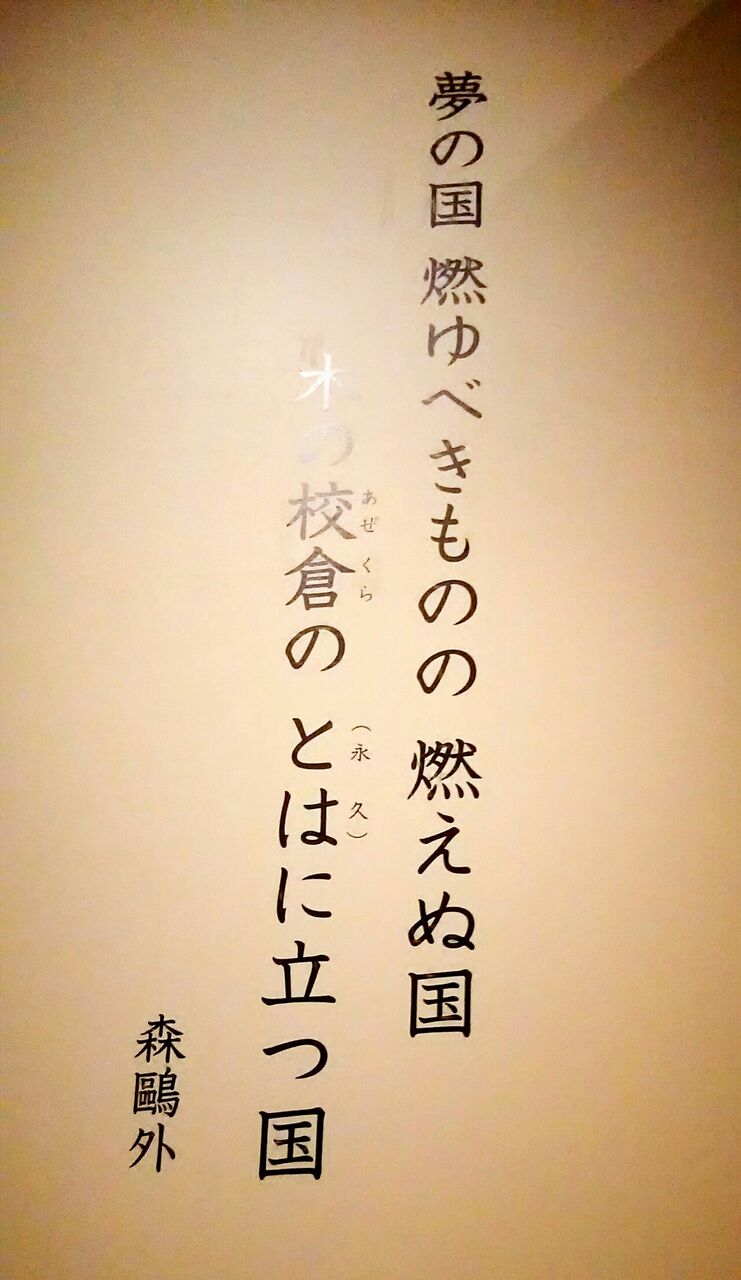 夢の国 燃ゆべきものの 燃えぬ国
木の校倉の とはに立つ国
あぜくら
（永久）
森鷗外